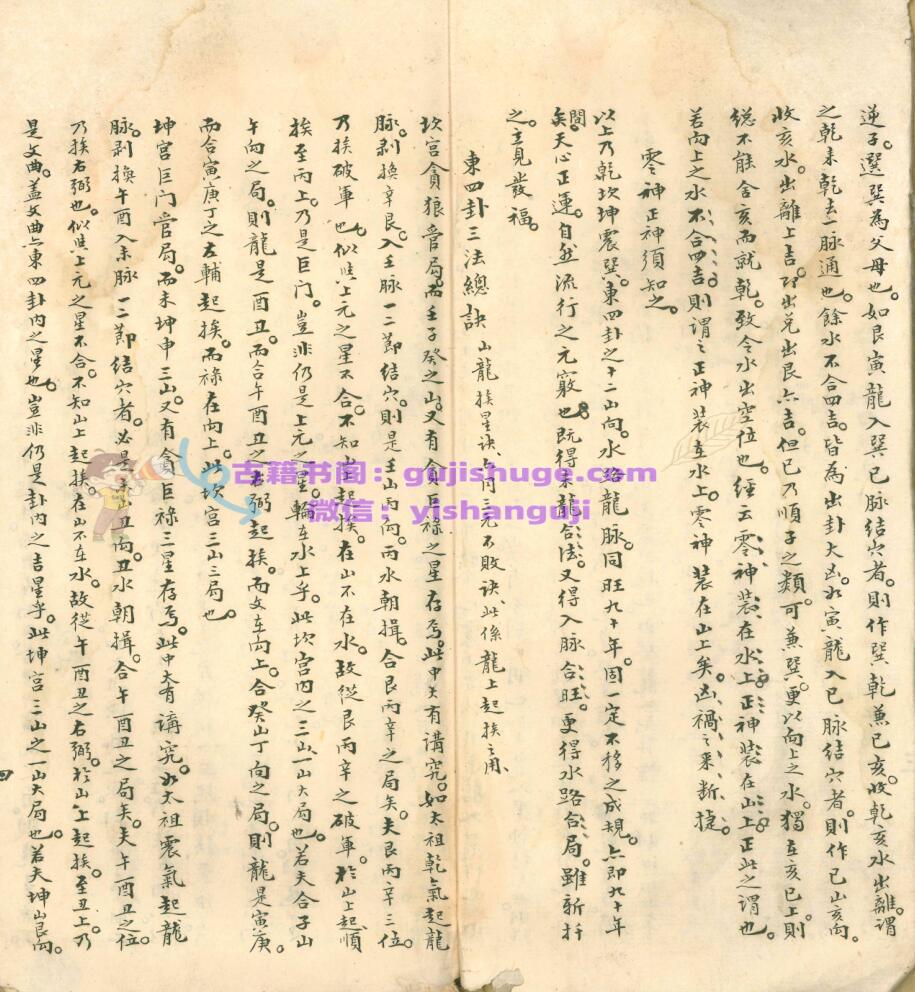 逆子。選巽為父母也。如艮寅龍入巽巳脉結穴者。則作巽乾兼巳亥。收乾亥水出離。謂
之乾来乾去一脉通也。餘水不合四吉。皆為出卦大凶。如寅龍入巳脉結穴者。則作巳山亥向。
收亥水。出離上吉。即出兌出艮六吉。但巳乃順子之類。可兼巽。更以向上之水。獨在亥巳上。則
総不能舍亥而就乾。致令水出空位也。經云零神装在水上。正神装在山上。正此之謂也。
若向上之水。不合四吉。則謂之正神装在水上。零神装在山上矣。凶禍之来。断捷。
零神正神須知之。
以上乃乾坎坤震巽。東四卦之十二山向。水路龍脉。同旺九十年。固一定不移之成規。六即九十年
間。
矣。天心正運。自然流行之元竅也。既得来龍合法。又得入脉合旺。更得水路合局。雖斬扦
之。立見發福。
東四卦三法總訣 山龍挨星訣。與三元不敗訣。此係龍上起挨之用。
坎宮貪狼管局。而壬子癸之山。又有貪巨禄之星存焉。此中大有講究。如太祖乾氣起龍
脉。剥換辛艮。入壬脉一二節結穴。則是壬山丙向。丙水朝揖。合艮丙辛之局矣。夫艮丙辛三位。
乃挨破軍也。似與上元之星不合。不知山上起挨。在山不在水。故從艮丙辛之破軍。於山上起順
挨至丙上。乃是巨门。豈非仍是上元之星。輪在水上乎。此坎宮内之三山。一山大局也。若夫合子山
午向之局。則龍是酉丑。而合午酉丑之右弼起挨。而文在向上。合癸山丁向之局。則龍是寅庚。
而合寅庚丁之左輔起挨。而禄在向上。此坎宮三山三局也。
坤宮巨门管局。而未坤申三山。又有貪巨禄三星存焉。此中大有講究。如太祖震氣起龍
脉。剥換午酉入未脉一二節結穴者。必是未山丑向。丑水朝揖。合午酉丑之局矣。夫午酉丑之位。
乃挨右弼也。似與上元之星不合。不知山上起挨。在山不在水。故從午酉丑之右弼。於山上起挨。至丑上。乃
是文曲。蓋文曲六東四卦内之星也。豈非仍是卦内之吉星乎。此坤宮三山之一山大局也。若夫坤山艮向。
四
古籍书阁：gujishuge.com
微信：yishanguji